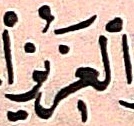 العزيزُ أ